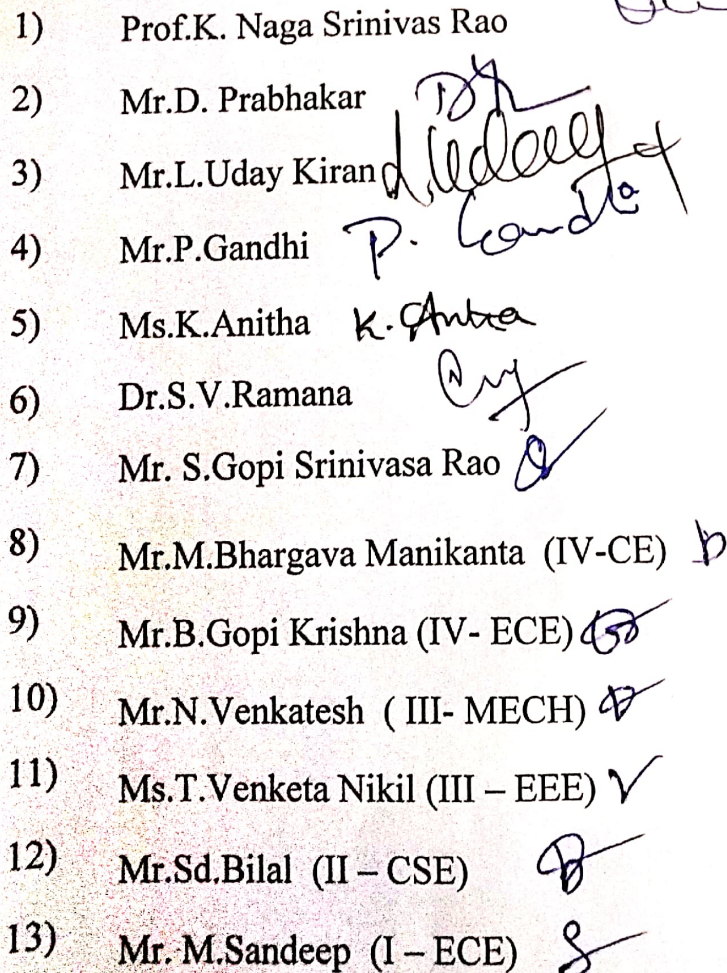 1) Prof.K. Naga Srinivas Rao
2) Mr.D. Prabhakar
3) Mr.L.Uday Kiran L.Uday
4) Mr.P.Gandhi P. Gandhi
5) Ms.K.Anitha K. Anitha
6) Dr.S.V.Ramana
7) Mr. S.Gopi Srinivasa Rao
8) Mr.M.Bhargava Manikanta (IV-CE) b
9) Mr.B.Gopi Krishna (IV- ECE)
10) Mr.N.Venkatesh ( III- MECH)
11) Ms.T.Venketa Nikil (III – EEE)
12) Mr.Sd.Bilal (II – CSE)
13) Mr. M.Sandeep (I – ECE)